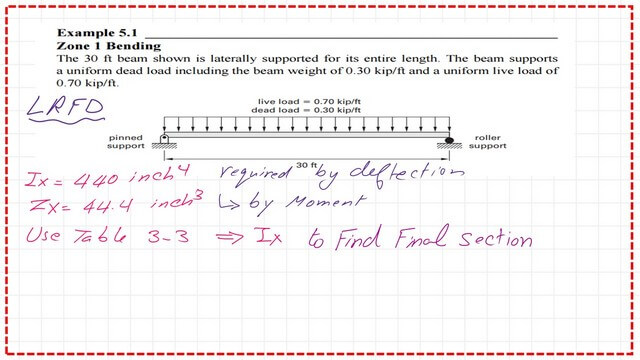 Example 5.1
Zone 1 Bending
The 30 ft beam shown is laterally supported for its entire length. The beam supports
a uniform dead load including the beam weight of 0.30 kip/ft and a uniform live load of
0.70 kip/ft.
LRFD
live load = 0.70 kip/ft
dead load = 0.30 kip/ft
pinned support
roller support
30 ft
Ix = 440 inch⁴ required by deflection
Zx = 44.4 inch³ ↳ by Moment
Use Table 3-3 ⇒ Ix to Find Final Section